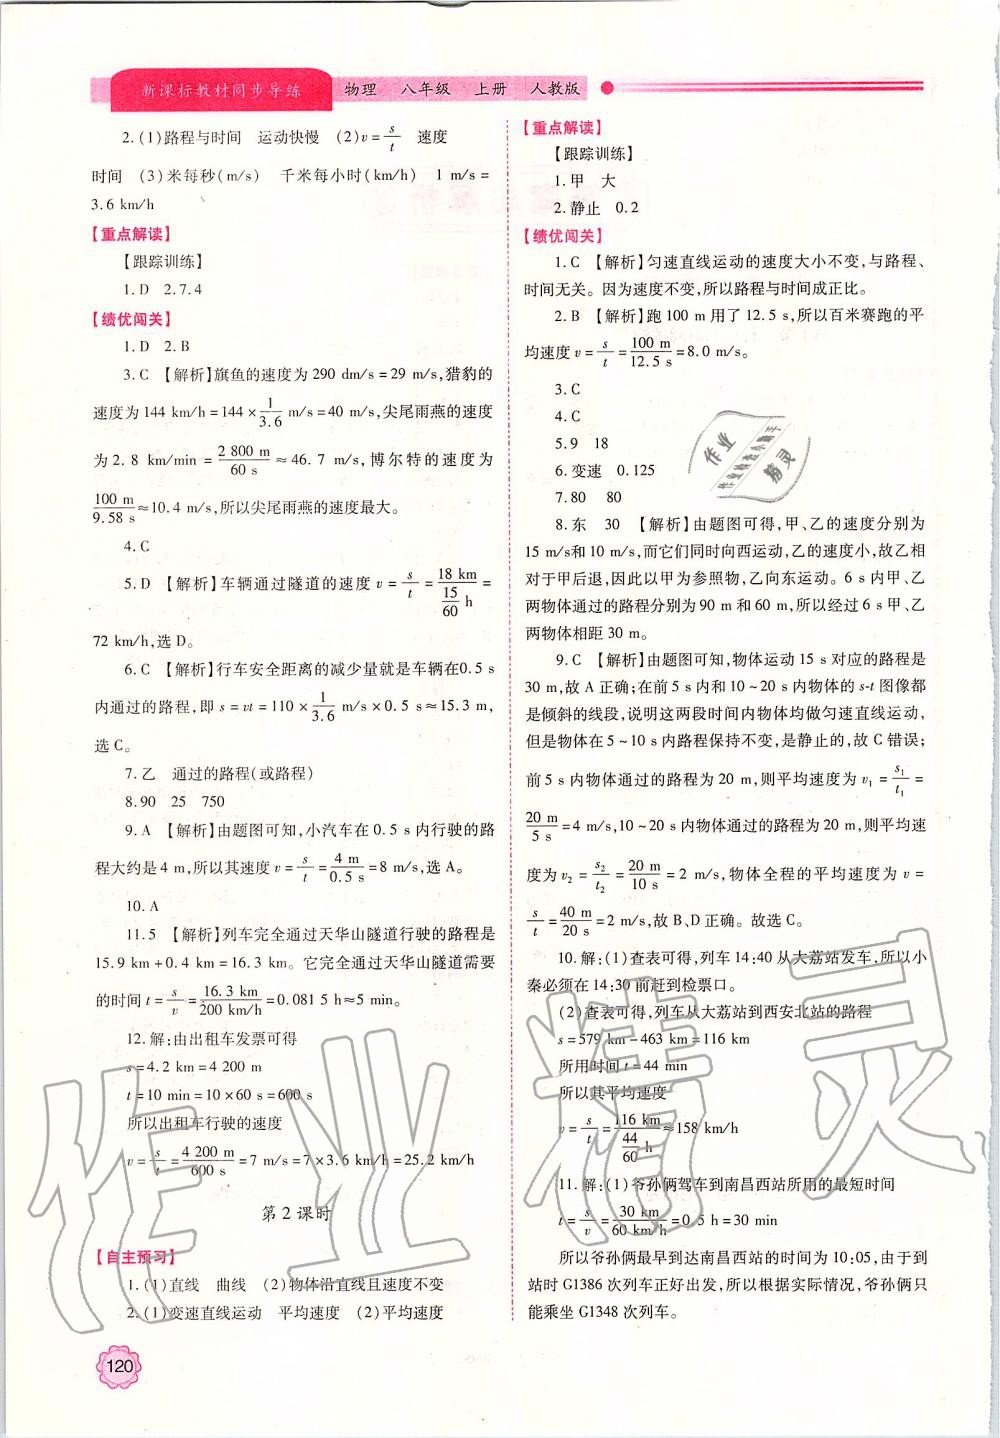 新课标教材同步导练 物理 八年级 上册 人教版
2.(1)路程与时间 运动快慢 (2)v=s/t 速度
时间 (3)米每秒(m/s) 千米每小时(km/h) 1 m/s=
3.6 km/h
【重点解读】
【跟踪训练】
1.D 2.7.4
【绩优闯关】
1.D 2.B
3.C 【解析】旗鱼的速度为 290 dm/s=29 m/s,猎豹的
速度为 144 km/h=144×1/3.6 m/s=40 m/s,尖尾雨燕的速度
为 2.8 km/min=2 800 m/60 s≈46.7 m/s,博尔特的速度为
100 m/9.58 s≈10.4 m/s,所以尖尾雨燕的速度最大。
4.C
5.D 【解析】车辆通过隧道的速度 v=s/t=18 km/(15/60 h)=
72 km/h,选 D。
6.C 【解析】行车安全距离的减少量就是车辆在0.5 s
内通过的路程,即 s=vt=110×1/3.6 m/s×0.5 s≈15.3 m,
选 C。
7.乙 通过的路程(或路程)
8.90 25 750
9.A 【解析】由题图可知,小汽车在 0.5 s 内行驶的路
程大约是 4 m,所以其速度 v=s/t=4 m/0.5 s=8 m/s,选 A。
10.A
11.5 【解析】列车完全通过天华山隧道行驶的路程是
15.9 km+0.4 km=16.3 km。它完全通过天华山隧道需要
的时间 t=s/v=16.3 km/200 km/h=0.081 5 h≈5 min。
12.解:由出租车发票可得
s=4.2 km=4 200 m
t=10 min=10×60 s=600 s
所以出租车行驶的速度
v=s/t=4 200 m/600 s=7 m/s=7×3.6 km/h=25.2 km/h
第 2 课时
【自主预习】
1.(1)直线 曲线 (2)物体沿直线且速度不变
2.(1)变速直线运动 平均速度 (2)平均速度
120
【重点解读】
【跟踪训练】
1.甲 大
2.静止 0.2
【绩优闯关】
1.C 【解析】匀速直线运动的速度大小不变,与路程、
时间无关。因为速度不变,所以路程与时间成正比。
2.B 【解析】跑 100 m 用了 12.5 s,所以百米赛跑的平
均速度 v=s/t=100 m/12.5 s=8.0 m/s。
3.C
4.C
5.9 18
6.变速 0.125
7.80 80
8.东 30 【解析】由题图可得,甲、乙的速度分别为
15 m/s和 10 m/s,而它们同时向西运动,乙的速度小,故乙相
对于甲后退,因此以甲为参照物,乙向东运动。6 s 内甲、乙
两物体通过的路程分别为 90 m和 60 m,所以经过 6 s 甲、乙
两物体相距 30 m。
9.C 【解析】由题图可知,物体运动 15 s 对应的路程是
30 m,故 A 正确;在前 5 s 内和 10~20 s 内物体的 s-t 图像都
是倾斜的线段,说明这两段时间内物体均做匀速直线运动,
但是物体在 5~10 s 内路程保持不变,是静止的,故 C 错误;
前 5 s 内物体通过的路程为 20 m,则平均速度为 v₁=s₁/t₁=
20 m/5 s=4 m/s,10~20 s 内物体通过的路程为 20 m,则平均速
度为 v₂=s₂/t₂=20 m/10 s=2 m/s,物体全程的平均速度为 v=
s/t=40 m/20 s=2 m/s,故 B、D 正确。故选 C。
10.解:(1)查表可得,列车 14:40 从大荔站发车,所以小
秦必须在 14:30 前赶到检票口。
(2)查表可得,列车从大荔站到西安北站的路程
s=579 km-463 km=116 km
所用时间 t=44 min
所以其平均速度
v=s/t=116 km/(44/60 h)≈158 km/h
11.解:(1)爷孙俩驾车到南昌西站所用的最短时间
t=s/v=30 km/60 km/h=0.5 h=30 min
所以爷孙俩最早到达南昌西站的时间为 10:05,由于到
站时 G1386 次列车正好出发,所以根据实际情况,爷孙俩只
能乘坐 G1348 次列车。
作业精灵